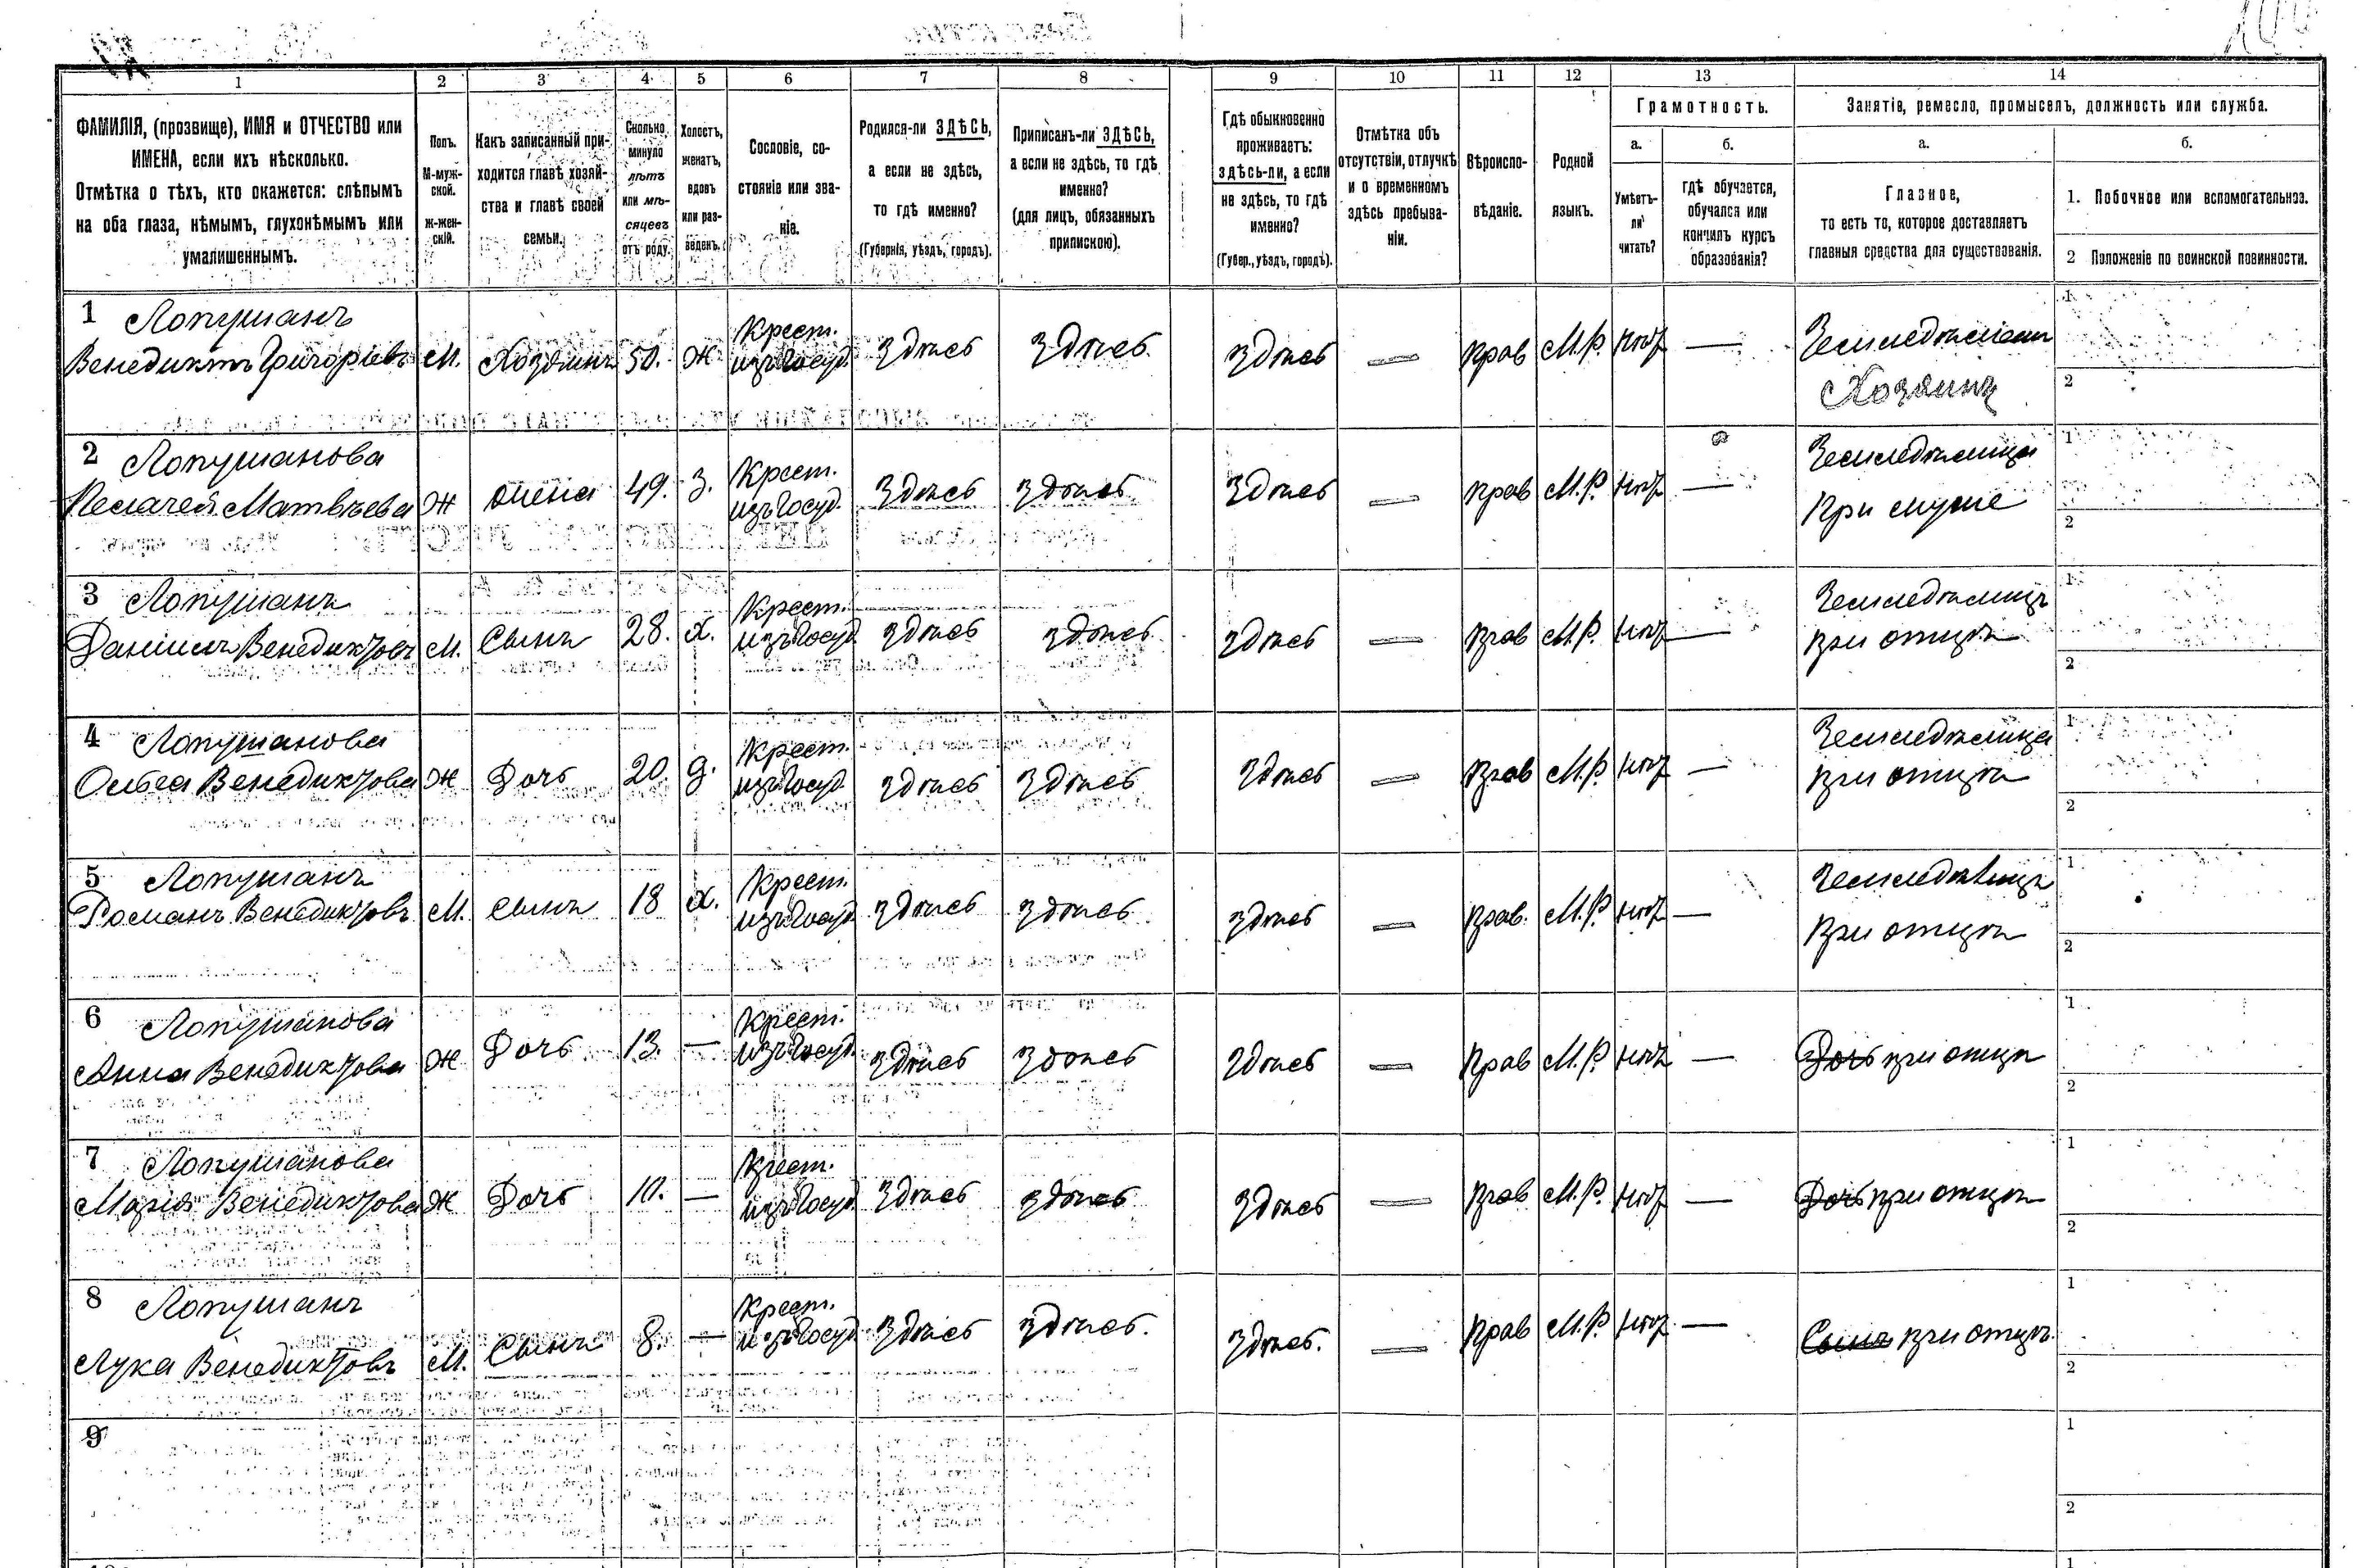 1 2 3 4 5 6 7 8 9 10 11 12 13 14
ФАМИЛІЯ, (прозвище), ИМЯ и ОТЧЕСТВО или
ИМЕНА, если ихъ нѣсколько.
Отмѣтка о тѣхъ, кто окажется: слѣпымъ
на оба глаза, нѣмымъ, глухонѣмымъ или
умалишеннымъ.
Полъ.
М-муж-
ской.
ж-жен-
скій.
Какъ записанный при-
ходится главѣ хозяй-
ства и главѣ своей
семьи.
Сколько
минуло
лѣтъ
или мѣ-
сяцевъ
отъ роду.
Холостъ,
женатъ,
вдовъ
или раз-
веденъ.
Сословіе, со-
стояніе или зва-
ніе.
Родился-ли ЗДѢСЬ,
а если не здѣсь,
то гдѣ именно?
(Губернія, уѣздъ, городъ).
Приписанъ-ли ЗДѢСЬ,
а если не здѣсь, то гдѣ
именно?
(для лицъ, обязанныхъ
припискою).
Гдѣ обыкновенно
проживаетъ:
здѣсь-ли, а если
не здѣсь, то гдѣ
именно?
(Губер., уѣздъ, городъ).
Отмѣтка объ
отсутствіи, отлучкѣ
и о временномъ
здѣсь пребыва-
ніи.
Вѣроиспо-
вѣданіе.
Родной
языкъ.
Грамотность.
а.
Умѣетъ-
ли
читать?
б.
гдѣ обучается,
обучался или
кончилъ курсъ
образованія?
Занятіе, ремесло, промыселъ, должность или служба.
а.
Главное,
то есть то, которое доставляетъ
главныя средства для существованія.
б.
1. Побочное или вспомогательное.
2 Положеніе по воинской повинности.
1 Лопушанъ Крест. Земледѣлецъ 1
Венедиктъ Григорьевъ М. Хозяинъ 50. Ж изъ госуд. Здѣсь Здѣсь Здѣсь — Прав М.Р. нѣт — Хозяинъ 2
2 Лопушанова Крест. Земледѣлица 1
Пелагея Матвѣева Ж жена 49. З. изъ госуд. Здѣсь Здѣсь Здѣсь — Прав М.Р. нѣт — При муже 2
3 Лопушанъ Крест. Земледѣлецъ 1
Даніилъ Венедиктовъ М. Сынъ 28. Х. изъ госуд Здѣсь Здѣсь Здѣсь — Прав М.Р. нѣт — при отцѣ 2
4 Лопушанова Крест. Земледѣлица 1
Ольга Венедиктова Ж Дочь 20. Д. изъ госуд Здѣсь Здѣсь Здѣсь — Прав М.Р. нѣт — при отцѣ 2
5 Лопушанъ Крест. Земледѣлецъ 1
Романъ Венедиктовъ М. Сынъ 18 Х. изъ госуд Здѣсь Здѣсь Здѣсь — Прав. М.Р. нѣт — При отцѣ 2
6 Лопушанова Крест. 1
Анна Венедиктова Ж Дочь 13. — изъ госуд Здѣсь Здѣсь Здѣсь — Прав М.Р. нѣт — Дочь при отцѣ 2
7 Лопушанова Крест. 1
Марія Венедиктова Ж Дочь 10. — изъ госуд Здѣсь Здѣсь Здѣсь — Прав М.Р. нѣт — Дочь при отцѣ 2
8 Лопушанъ Крест. 1
Лука Венедиктовъ М. Сынъ 8. — изъ госуд Здѣсь Здѣсь. Здѣсь. — Прав М.Р. нѣт — Сынъ при отцѣ. 2
9 1
2
1